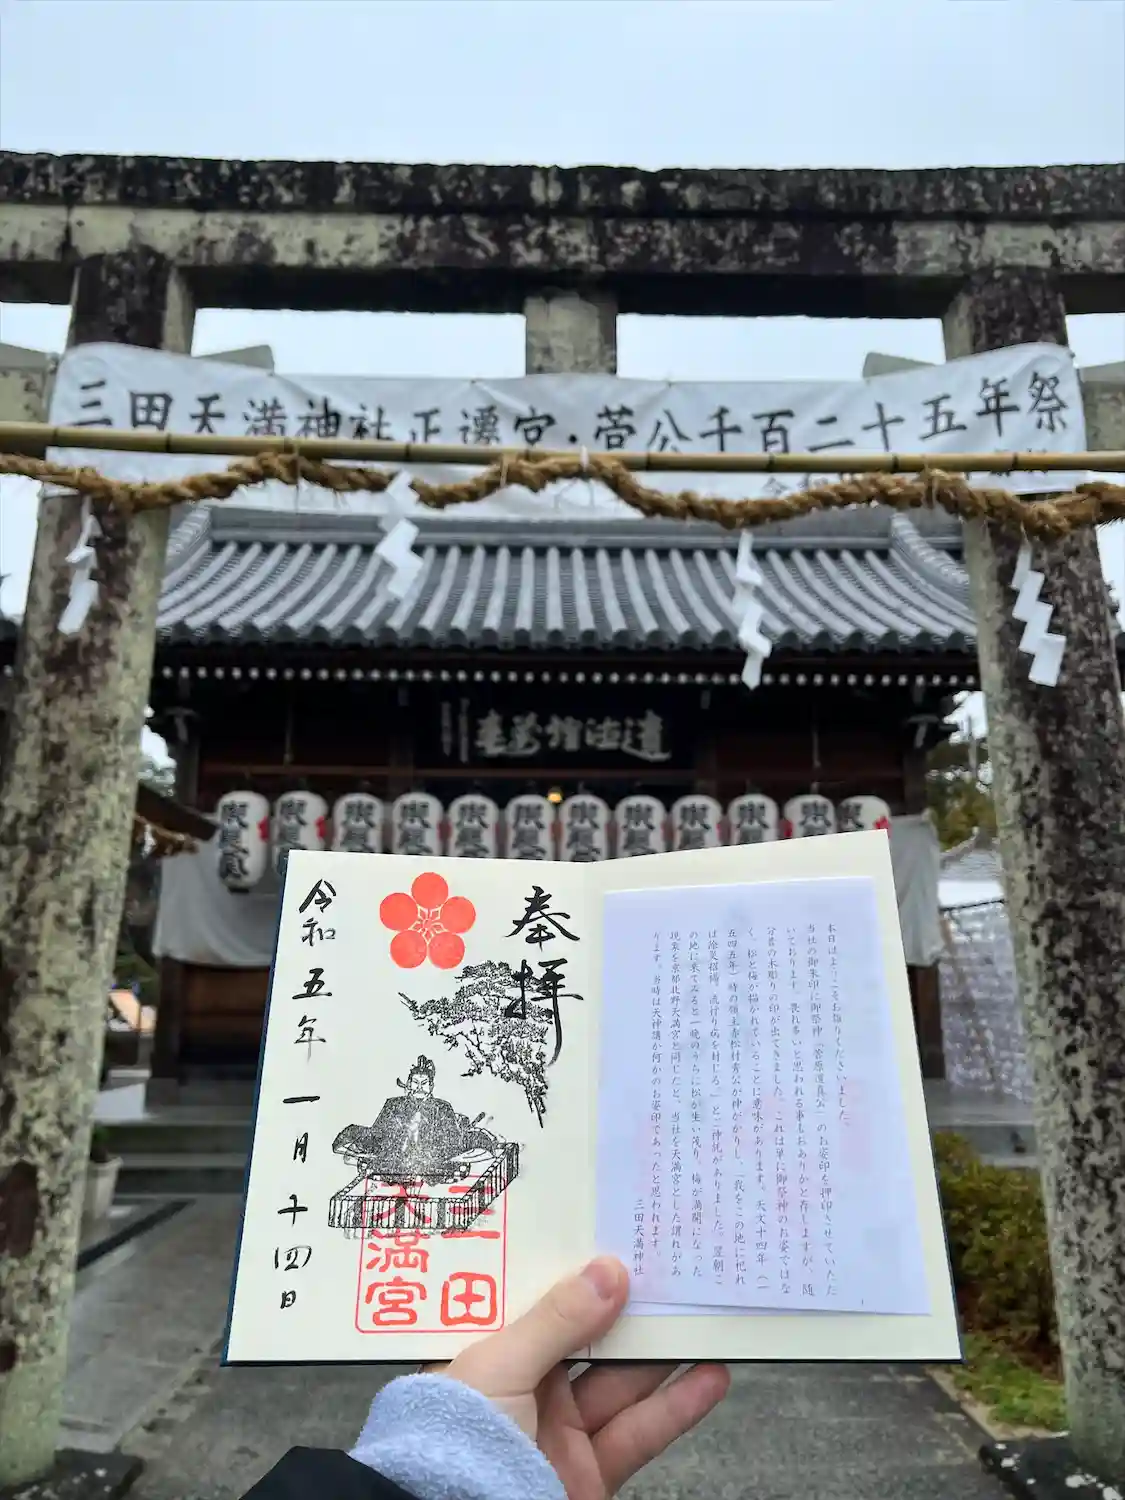 三田天満神社正遷宮・菅公千百二十五年祭
奉拝
三田
天満宮
令和五年一月十四日
本日はようこそお詣りくださいました。
当社の御朱印に御祭神（菅原道真公）のお姿印を押印させていただ
いております。畏れ多いと思われる事もおありかと存じますが、随
分昔の木彫りの印が出てきました。これは単に御祭神のお姿ではな
く、松と梅が描かれていることに意味があります。天文十四年（一
五四五年）時の領主赤松村秀公が神がかりし、「我をこの地に祀れ
ば除災招福、流行り病を封じる。」とご神託がありました。翌朝こ
の地に来てみると一晩のうちに松が生い茂り、梅が満開になった
現象を京都北野天満宮と同じだと、当社を天満宮とした謂れがあ
ります。当時は天神講か何かのお姿印であったと思われます。
三田天満神社